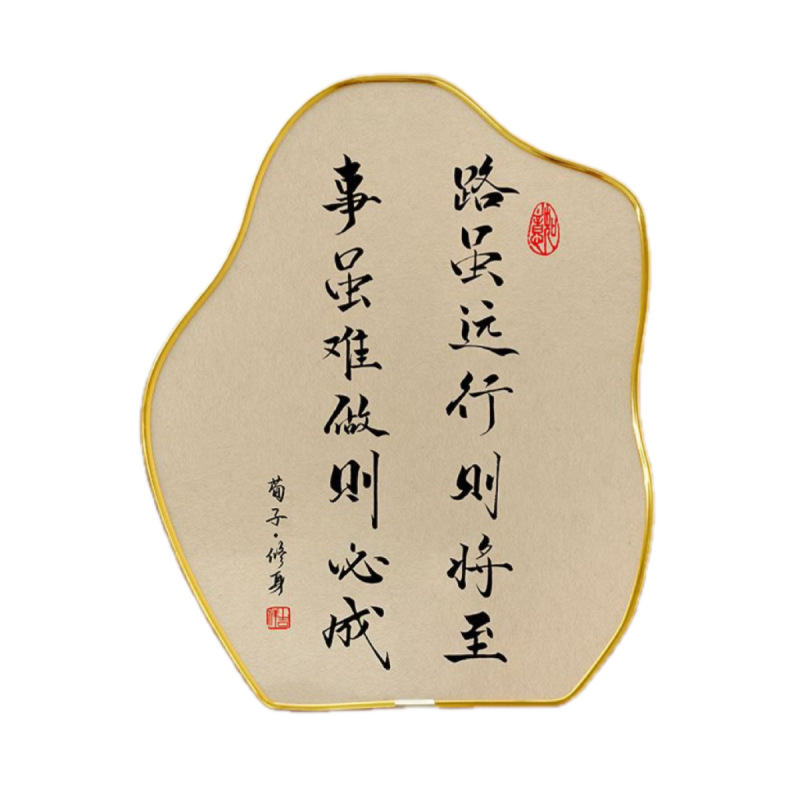 路虽远行则将至
如意
事虽难做则必成
荀子·修身